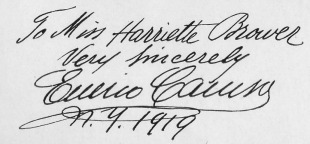 To Miss Harriette Brower
Very sincerely
Enrico Caruso
N.Y. 1919